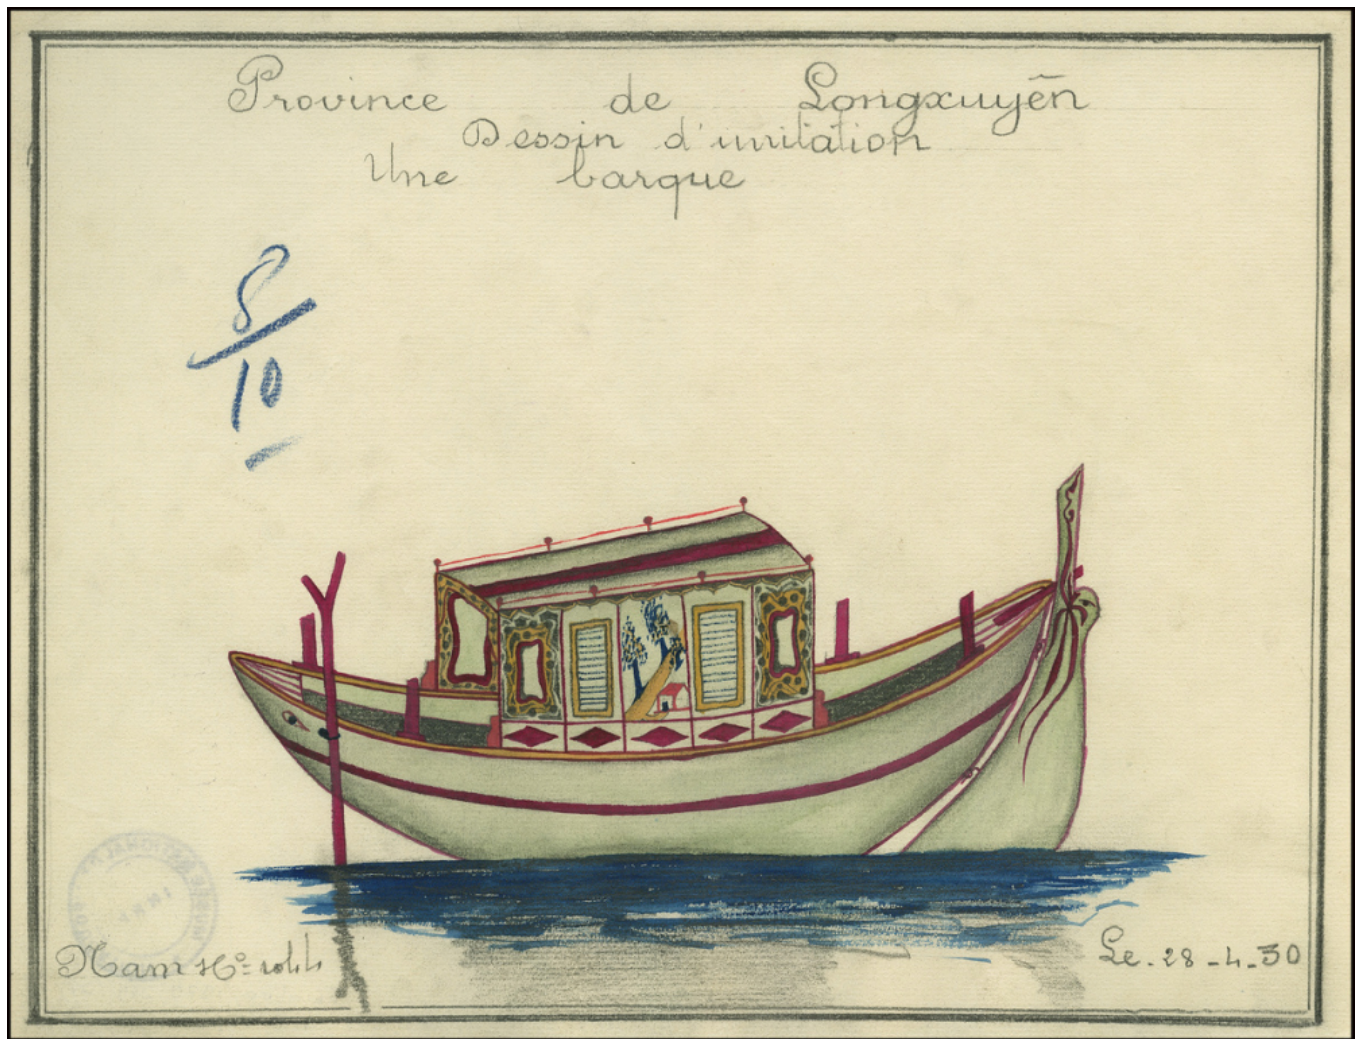 Province de Longxuyẽn
Dessin d'imitation
Une barque
8/10
Nam
Le. 28-4-30